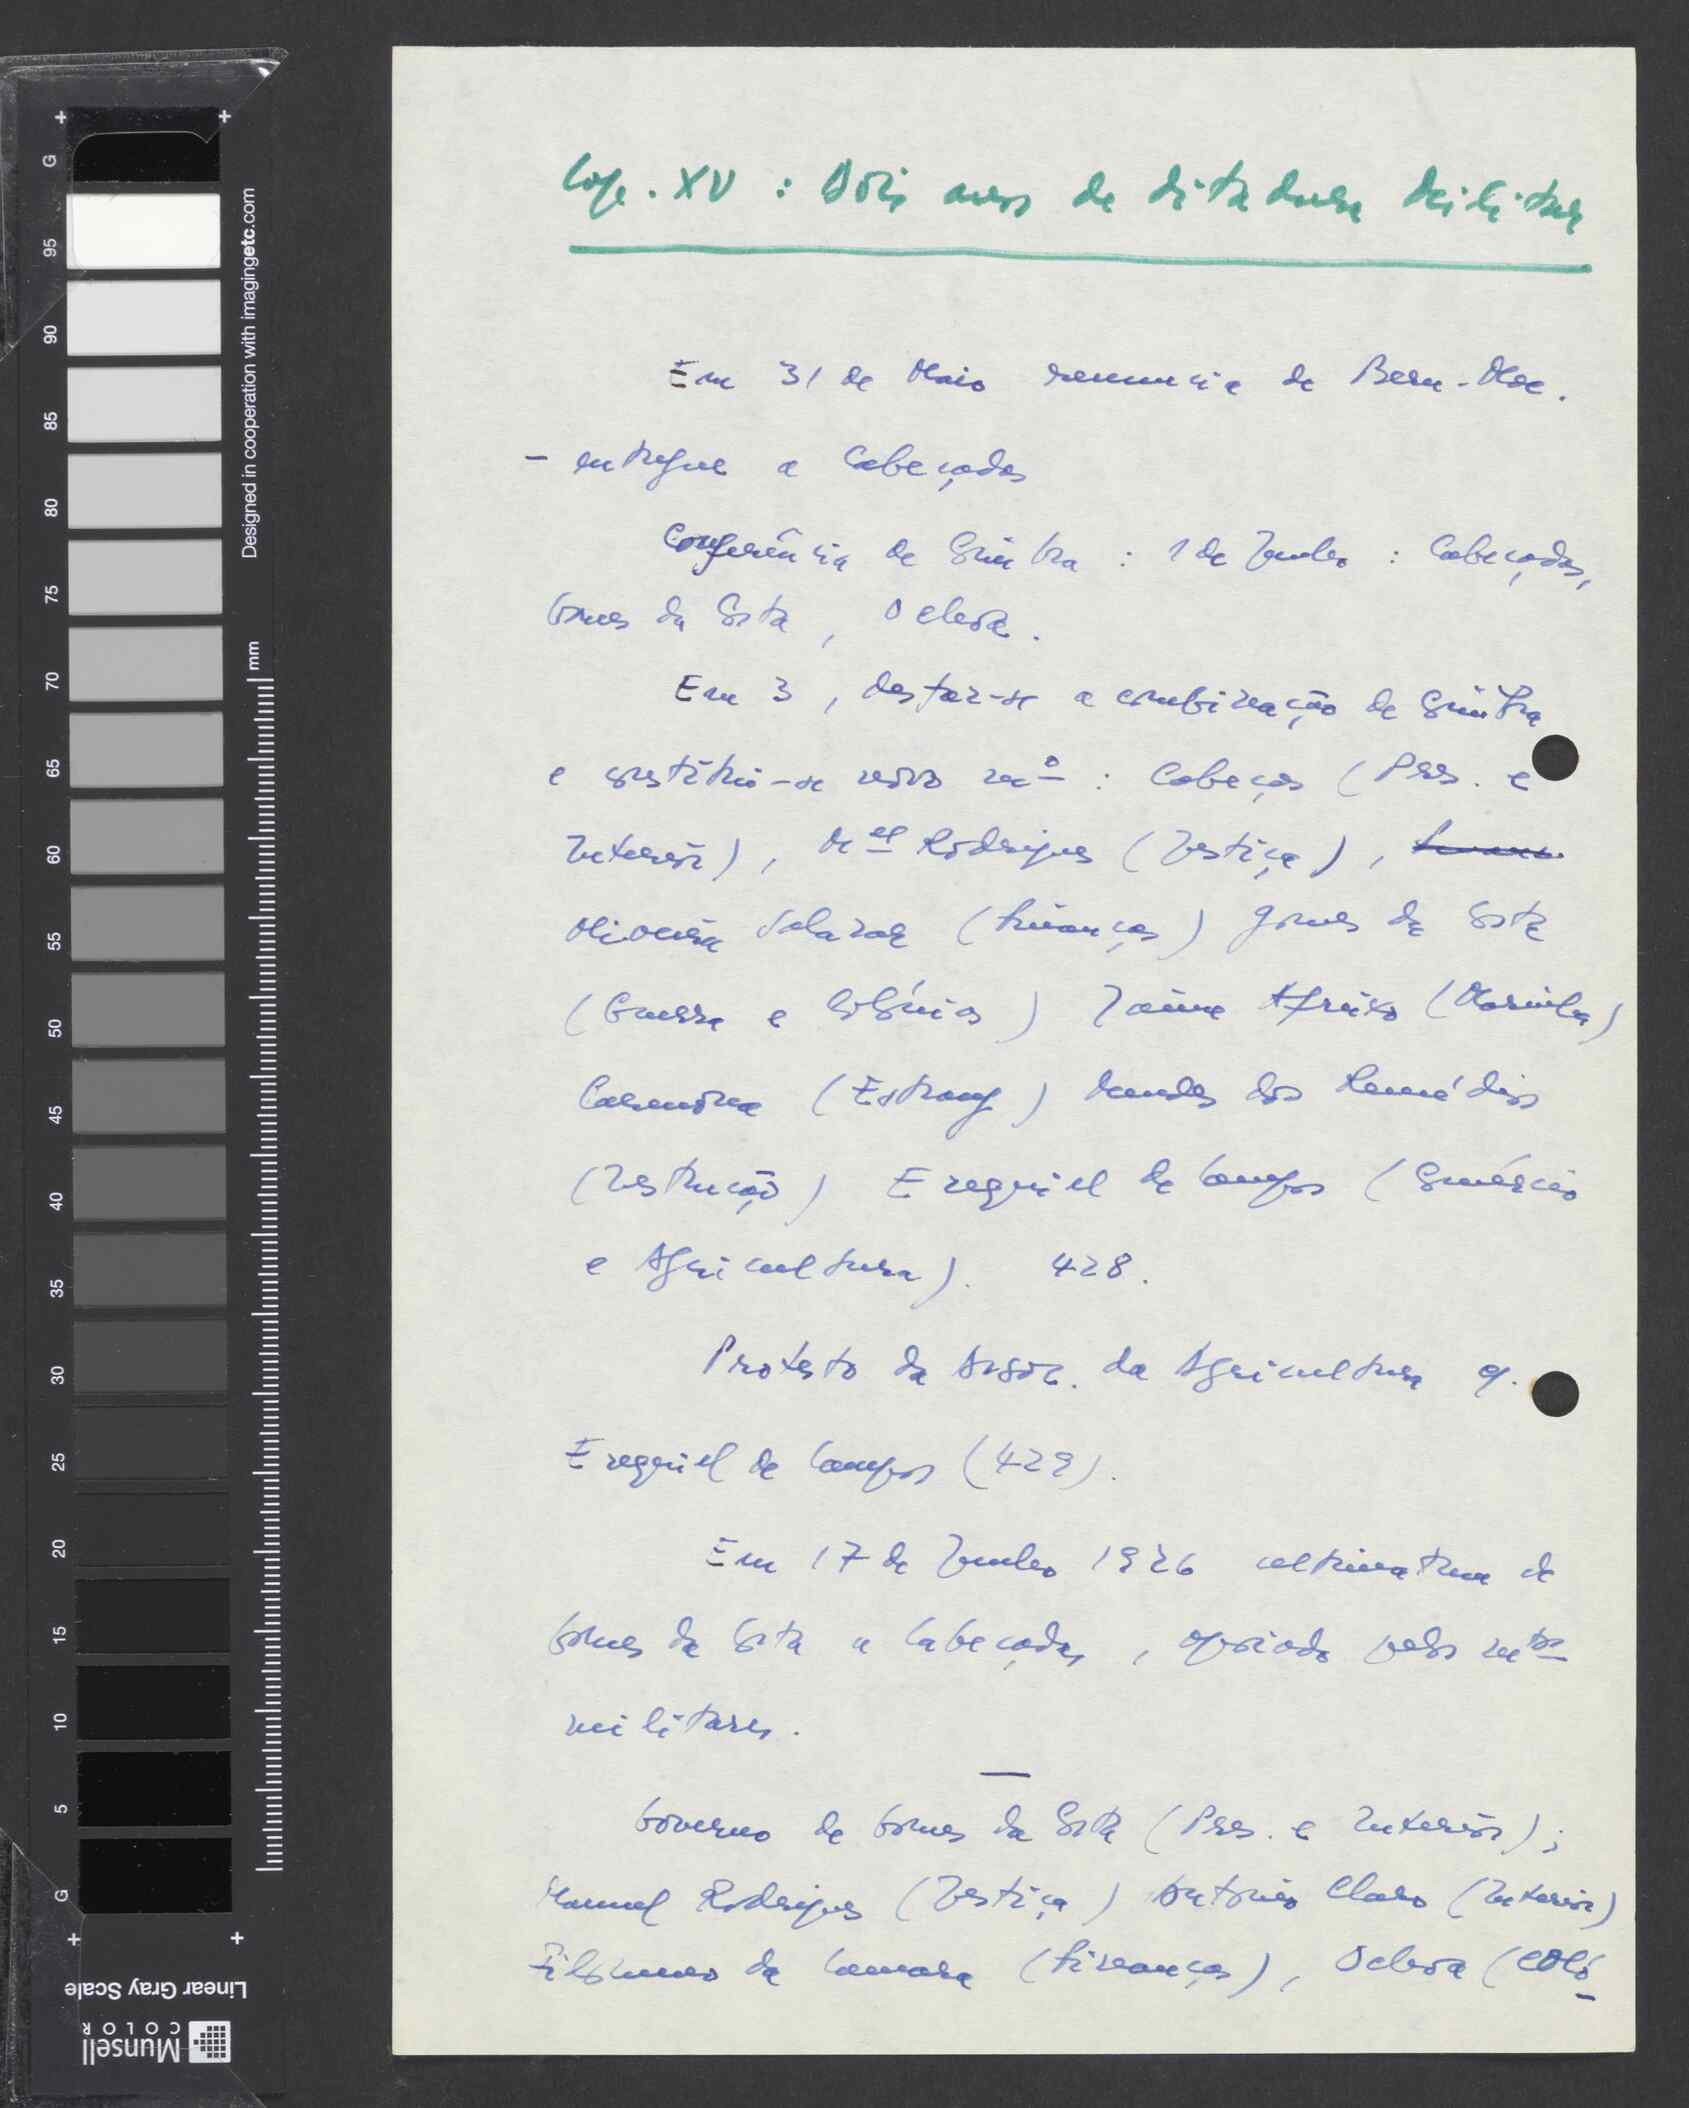 Cap. XV : Dois anos de ditadura militar
Em 31 de Maio renuncia de Bern. Mac.
- entregue a Cabeçadas
Conferência de Sintra : 1 de Junho : Cabeçadas,
Gomes da Costa, Ochoa.
Em 3, desfaz-se a combinação de Sintra
e constitui-se novo mº : Cabeças (Pres. e
Interior), Mel Rodrigues (Justiça),
Oliveira Salazar (Finanças) Gomes da Costa
(Guerra e Colónias) Jaime Afreixo (Marinha)
Carmona (Estrang) Mendes dos Remédios
(Instrução) Ezequiel de Campos (Comércio
e Agricultura). 428.
Protesto da Assoc. da Agricultura q.
Ezequiel de Campos (429).
Em 17 de Junho 1926 ultimatum de
Gomes da Costa a Cabeçadas, apoiado pelos mtos
militares.
—
Governo de Gomes da Costa (Pres. e Interior);
Manuel Rodrigues (Justiça) António Claro (Interior)
Filomeno da Camara (Finanças), Ochoa (Coló-
G
95
90
85
80
75
70
65
60
55
50
45
40
35
30
25
20
15
10
5
G
mm
Designed in cooperation with imagingetc.com
Linear Gray Scale
Munsell
COLOR